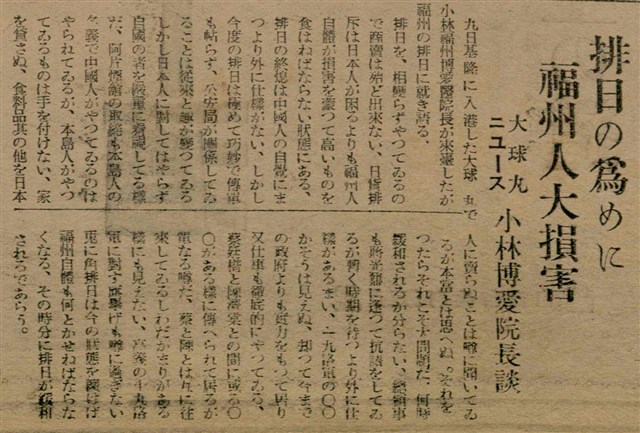 排日の爲めに
福州人大損害
大球丸ニュース 小林博愛院長談
九日基隆に入港した大球丸で
小林福州博愛醫院長が來臺したが
福州の排日に就き語る、
排日を、相變らずやつてゐるの
で商賣は殆ど出來ない、日貨排
斥は日本人が困るよりも福州人
自體が損害を蒙つて高いものを
食はねばならない狀態にある、
排日の終熄は中國人の自覺にま
つより外に仕樣がない、しかし
今度の排日は極めて巧妙で傳單
も帖らず、公安局が關係してゐ
ることは從來と趣が變つてゐる
しかし日本人に對してはやらず
自國の者を嚴重に看視してゐる樣
だ、阿片煙館の取締も本島人の
名義で中國人がやつてゐるのは
やられてゐるが、本島人がやつ
てゐるものは手を付けない、家
を貸さぬ、食料品其の他を日本
人に賣らぬことは噂に聞いてゐ
るが本當とは思へぬ。それを
つたらそれこそ大問題だ、何時
緩和されるか分らない、總領事
も將光鼐に逢つて抗議をしてゐ
るが暫く時期を待つより外に仕
樣があるまい、十九路軍の〇〇
かそうは見えぬ、却つて今まで
の政府よりも力をもつて居り
又仕事も徹底的にやつてゐる、
蔡廷楷と陳濟棠との間に或る〇
〇がある樣に傳へられて居るが
なる噂だ、蔡と陳とは互に往
來してゐるしわだかまりがある
樣にも見えない、の十九路
軍に對する旗擧げも噂に過ぎない
兎に角排日は今の狀態を續ければ
福州自體も何とかせねばならな
くなる、その時分に排日が緩和
されるであらう。